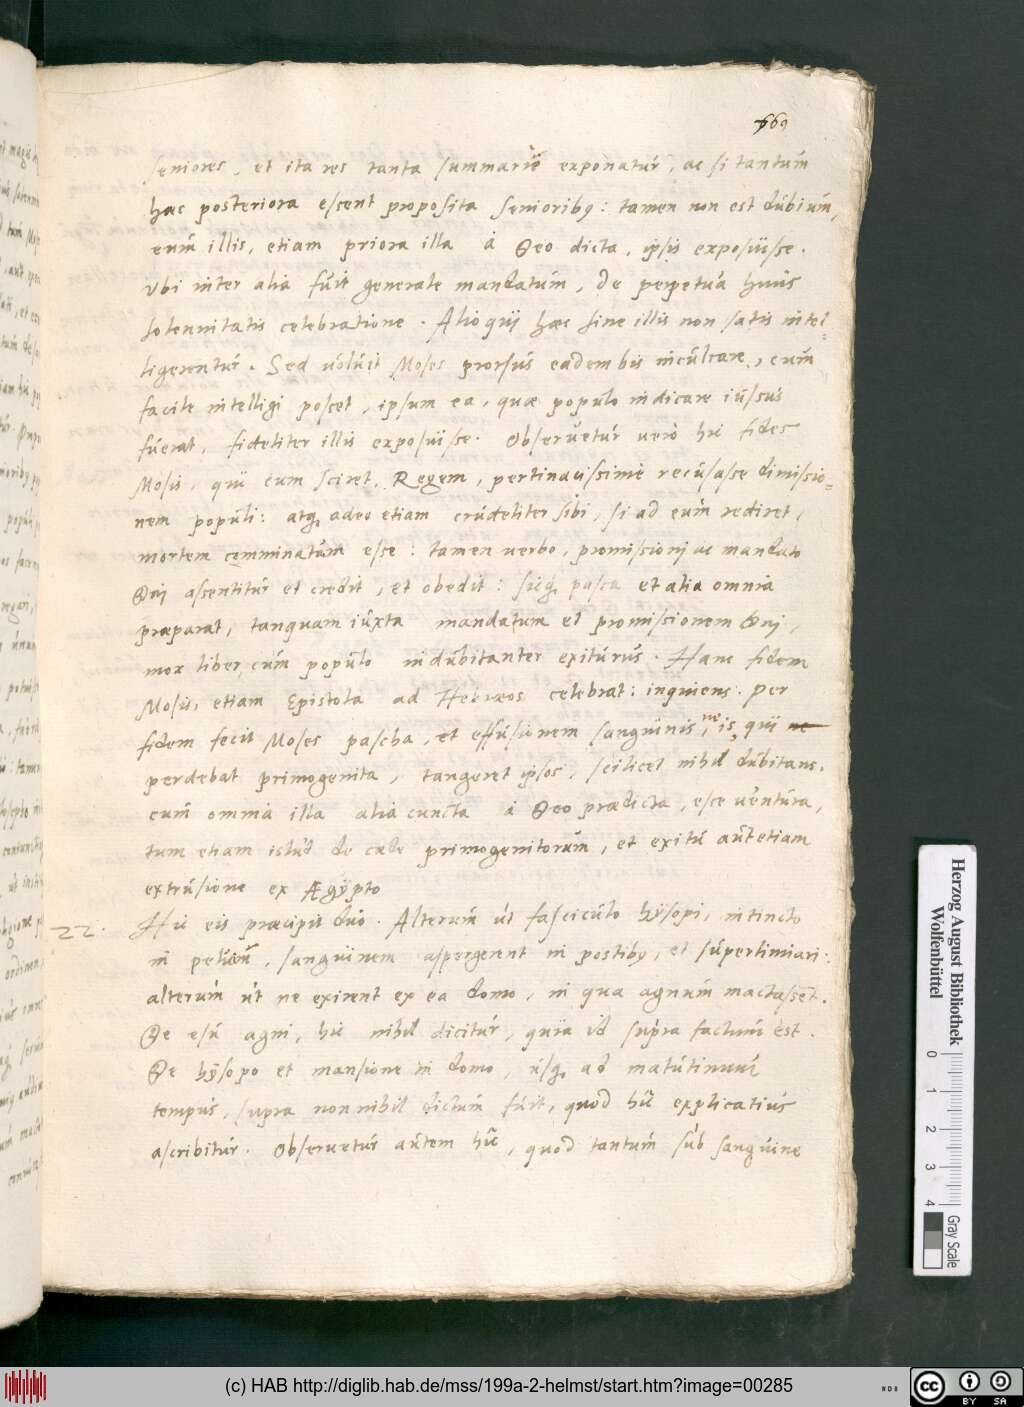 169
seniores, et ita res tanta summariè exponatur, ac si tantum
hæc posteriora essent proposita seniorib9: tamen non est dubium,
eum illis, etiam priora illa à Deo dicta, ipsis exposuisse.
Vbi inter alia fuit generale mandatum, de perpetua huius
solennitatis celebratione. Alioqui hæc sine illis non satis intel=
ligerentur. Sed uoluit Moses prorsus eadem bis inculcare, cum
facile intelligi posset, ipsum ea, quæ populo indicare iussus
fuerat, fideliter illis exposuisse. Obseruetur uerò hic fides
Mosis, qui cum sciret, Regem, pertinacissimè recusasse dimissio=
nem populi: atq; adeo etiam crudeliter sibi, si ad eum rediret,
mortem comminatum esse: tamen uerbo, promissioni ac mandato
Dni assentitur et credit, et obedit: sicq; pasca et alia omnia
præparat, tanquam iuxta mandatum et promissionem Dni,
mox liber cum populo indubitanter exiturus. Hanc fidem
Mosis, etiam Epistola ad Hebræos celebrat: inquiens. per
fidem fecit Moses pascha, et effusionem sanguinis, ne is, qui ne
perdebat primogenita, tangeret ipsos, scilicet nihil dubitans,
cum omnia illa alia cuncta à Deo prædicta, esse uentura,
tum etiam istud de cæde primogenitorum, et exitu aut etiam
extrusione ex Ægypto
22. Hic eis præcipit duo. Alterum ut fasciculo hysopi, intincto
in peluim, sanguinem aspergerent in postib9, et superliminari:
alterum ut ne exirent ex ea domo, in qua agnum mactassent.
De esu agni, hic nihil dicitur, quia id supra factum est.
De hysopo et mansione in domo, usq; ad matutinum
tempus, supra nonnihil dictum fuit, quod hic explicatius
ascribitur. Obseruetur autem hic, quod tantum sub sanguine
Herzog August Bibliothek
Wolfenbüttel
0 1 2 3 4
Gray Scale
(c) HAB http://diglib.hab.de/mss/199a-2-helmst/start.htm?image=00285
cc BY SA